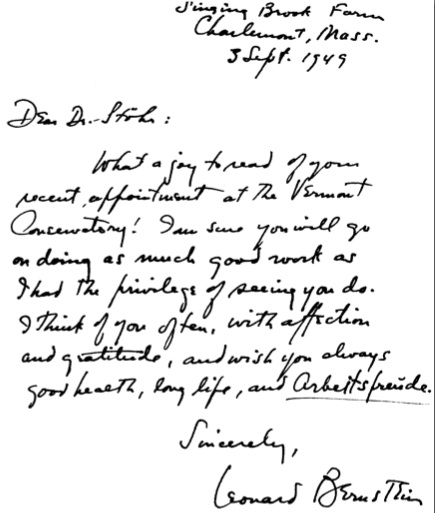 Singing Brook Farm
Charlemont, Mass.
3 Sept. 1949
Dear Dr. Stöhr:
What a joy to read of your
recent appointment at the Vermont
Conservatory! I am sure you will go
on doing as much good work as
I had the privilege of seeing you do.
I think of you often, with affection
and gratitude, and wish you always
good health, long life, and Arbeitsfreude.
Sincerely,
Leonard Bernstein